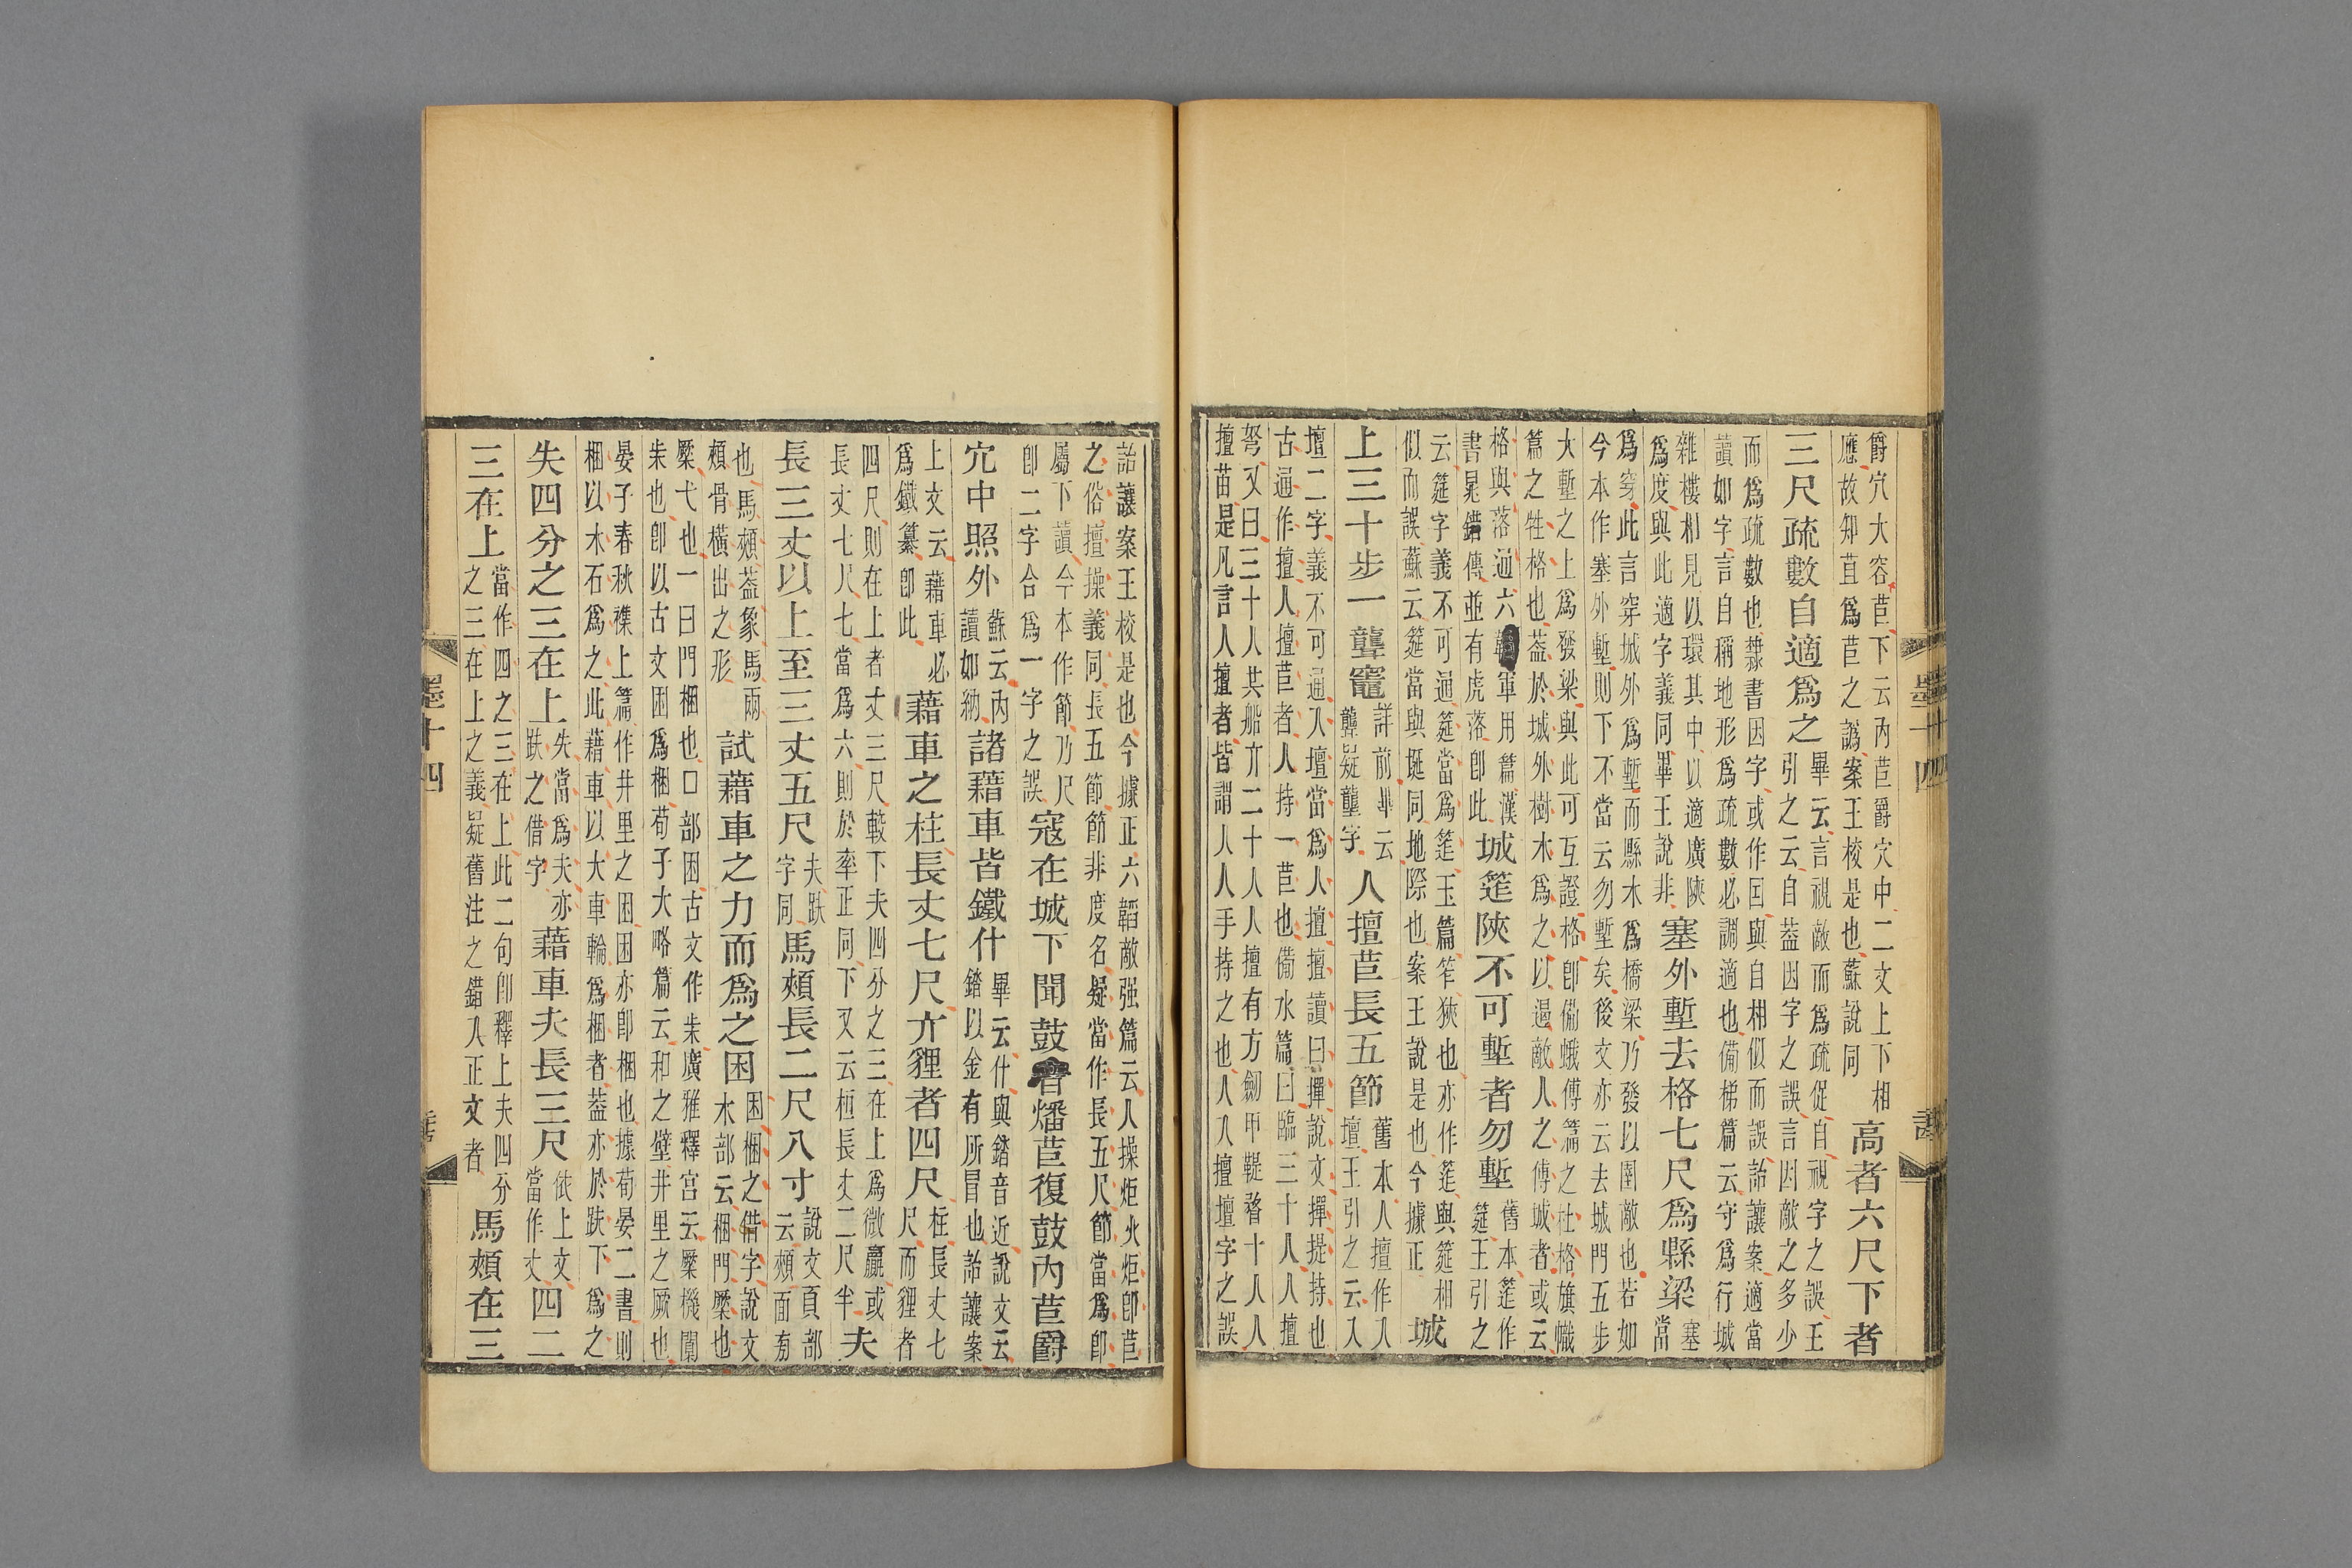 爵穴大容苣下云內苣爵穴中二文上下相
應故知苴爲苣之譌案王校是也蘇說同
高者六尺下者
三尺疏數自適爲之
畢云言視敵而爲疏促自視字之誤王
引之云自葢因字之誤言因敵之多少
而爲疏數也隸書因字或作囙與自相似而誤詒讓案適當
讀如字言自稱地形爲疏數必調適也備梯篇云守爲行城
雜樓相見以環其中以適廣陝
爲度與此適字義同畢王說非
塞外塹去格七尺爲縣梁
塞
當
爲穿此言穿城外爲塹而縣木爲橋梁乃發以圍敵也若如
今本作塞外塹則下不當云勿塹矣後文亦云去城門五步
大塹之上爲發梁與此可互證格卽備蛾傅篇之杜格旗幟
篇之牲格也葢於城外樹木爲之以遏敵人之傅城者或云
格與落通六韜軍用篇漢
書鼂錯傳並有虎落卽此
城筳陝不可塹者勿塹
舊本筳作
筵王引之
云筵字義不可通筵當爲筳玉篇笮狹也亦作筳與筵相
似而誤蘇云筵當與埏同地際也案王說是也今據正
城
上三十步一聾竈
詳前畢云
聾疑壟字
人擅苣長五節
舊本人擅作入
壇王引之云入
壇二字義不可通入壇當爲人擅擅讀曰撣說文撣提持也
古通作擅人擅苣者人持一苣也備水篇曰臨三十人人擅
弩又曰三十人共船亣二十人人擅有方劒甲鞮瞀十人人
擅苗是凡言人擅者皆謂人人手持之也人入擅壇字之誤
詒讓案王校是也今據正六韜敵强篇云人操炬火炬卽苣
之俗擅操義同長五節節非度名疑當作長五尺節當爲卽
屬下讀今本作節乃尺
卽二字合爲一字之誤
寇在城下聞鼓音燔苣復鼓內苣爵
穴中照外
蘇云內
讀如納
諸藉車皆鐵什
畢云什與鍇音近說文云
鍇以金有所冒也詒讓案
上文云藉車必
爲鐵纂卽此
藉車之柱長丈七尺亣貍者四尺
柱長丈七
尺而貍者
四尺則在上者丈三尺較下夫四分之三在上爲微贏或
長丈七尺七當爲六則於率正同下又云桓長丈二尺半
夫
長三丈以上至三丈五尺
夫趺
字同
馬頰長二尺八寸
說文頁部
云頰面㫄
也馬頰葢象馬兩
頰骨橫出之形
試藉車之力而爲之困
困梱之借字說文
木部云梱門橜也
橜弋也一曰門梱也口部困古文作朱廣雅釋宮云橜機闑
朱也卽以古文困爲梱荀子大略篇云和之璧井里之厥也
晏子春秋襍上篇作井里之困困亦卽梱也據荀晏二書則
梱以木石爲之此藉車以大車輪爲梱者葢亦於趺下爲之
失四分之三在上
失當爲夫亦
趺之借字
藉車夫長三尺
依上文
當作丈
四二
三在上
當作四之三在上此二句卽釋上夫四分
之三在上之義疑舊注之錯入正文者
馬頰在三
墨十四